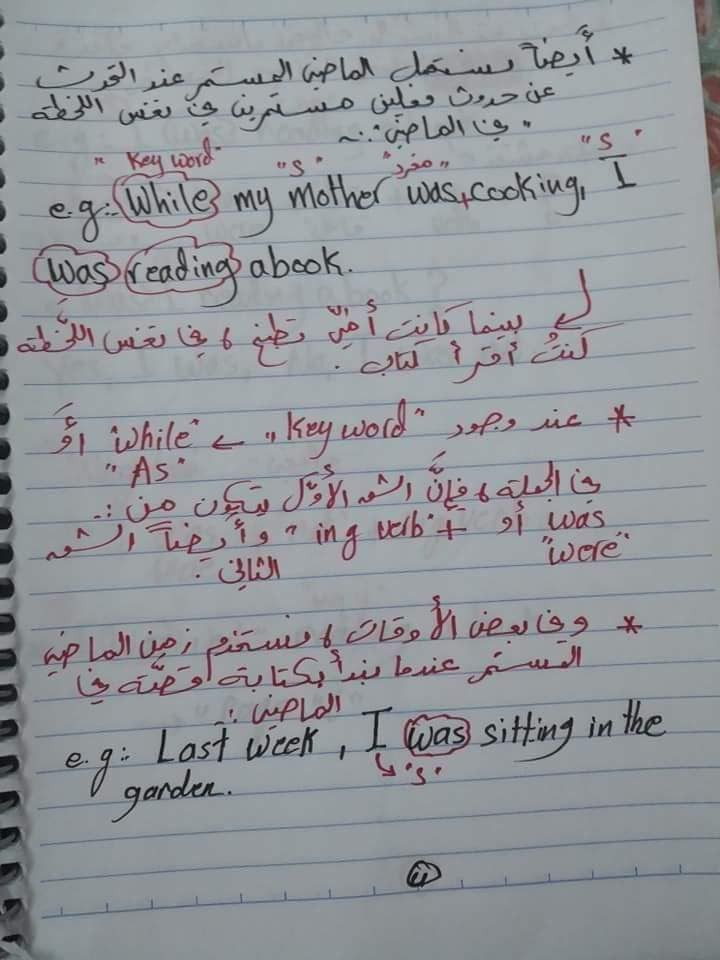 * أيضاً يستعمل الماضي المستمر عند التحدث
عن حدوث فعلين مستمرين في نفس اللحظة
في الماضي :.~
"Key word" "S" "مفرد" "S"
e.g:. While my mother was + cooking, I
was reading a book.
بينما كانت أمّي تطبخ ، في نفس اللّحظة
كنتُ أقرأ كتاب .
* عند وجود "Key word" ← "While" أوَ
"As"
في الجملة ، فإنَّ الشق الأوَّل يتكون من :.
was أو + "ing verb" وأيضاً الشق
"were" الثاني .
* وفي بعض الأوقات ، نستخدم زمن الماضي
المستمر عندما نبدأ بكتابة قصَّة في
الماضي :.
e.g:. Last week, I was sitting in the
"S"
garden.